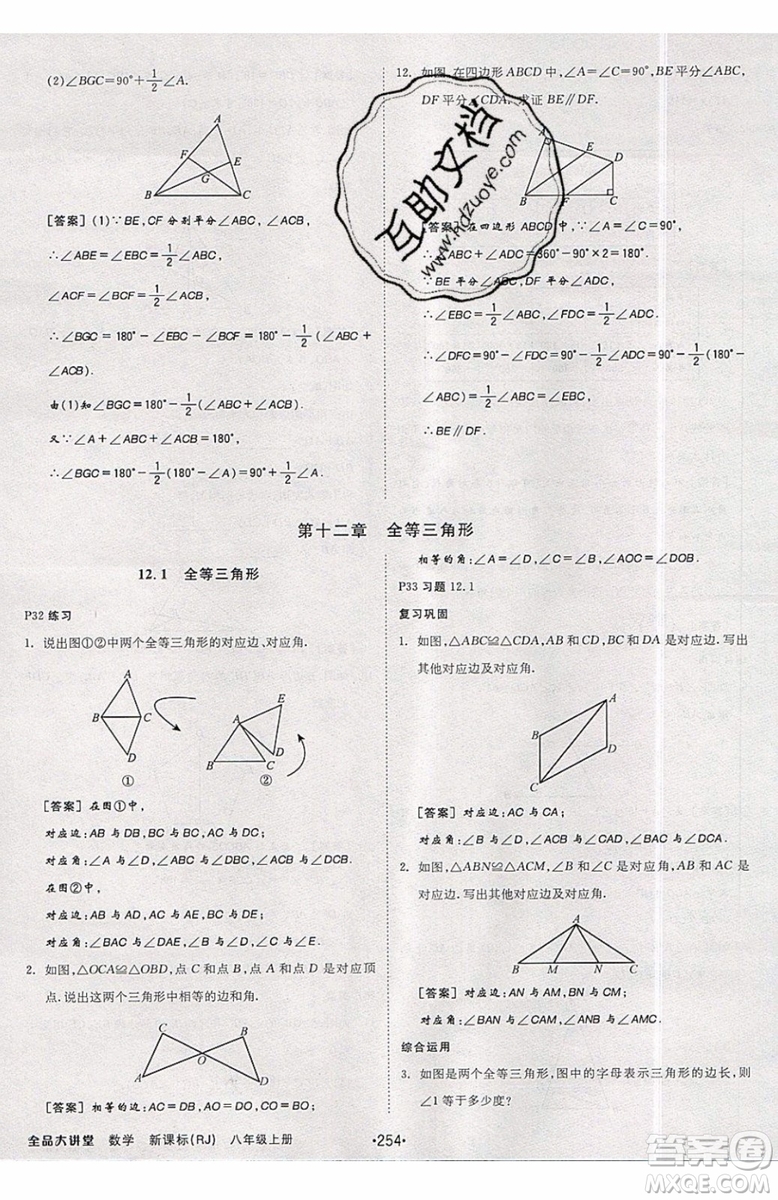 (2)∠BGC=90°+1/2∠A.
A
F
E
G
B
C
[答案](1)∵BE,CF分别平分∠ABC,∠ACB
∴∠ABE=∠EBC=1/2∠ABC,
∠ACF=∠FCB=1/2∠ACB,
∴∠BGC=180°-∠EBC-∠BCF=180°-1/2(∠ABC+
∠ACB).
由(1)知∠BGC=180°-1/2(∠ABC+∠ACB),
又∵∠A+∠ABC+∠ACB=180°,
∴∠BGC=180°-1/2(180°-∠A)=90°+1/2∠A.
12. 如图,在四边形ABCD中,∠A=∠C=90°,BE平分∠ABC,
DF平分∠CDA. 求证BE∥DF.
A
E
D
B
F
C
[答案]∵在四边形ABCD中,∠A=∠C=90°,
∴∠ABC+∠ADC=360°-90°×2=180°.
∵BE平分∠ABC,DF平分∠ADC,
∴∠EBC=1/2∠ABC,∠FDC=1/2∠ADC,
∴∠DFC=90°-∠FDC=90°-1/2∠ADC=90°-1/2(180°-
∠ABC)=1/2∠ABC=∠EBC,
∴BE∥DF.
第十二章 全等三角形
12.1 全等三角形
P32练习
1. 说出图①②中两个全等三角形的对应边、对应角.
A
B
C
D
①
E
A
D
B
C
②
[答案]在图①中,
对应边:AB与DB,AC与DC,BC与BC;
对应角:∠A与∠D,∠ABC与∠DBC,∠ACB与∠DCB.
在图②中,
对应边:AB与AD,AC与AE,BC与DE;
对应角:∠BAC与∠DAE,∠B与∠D,∠C与∠E.
2. 如图,△OCA≌△OBD,点C和点B,点A和点D是对应顶
点.说出这两个三角形中相等的边和角.
C
B
O
A
D
[答案]相等的边:AC=DB,OC=OB,OA=OD;
相等的角:∠A=∠D,∠C=∠B,∠AOC=∠DOB.
P33习题12.1
复习巩固
1. 如图,△ABC≌△CDA,AB和CD,BC和DA是对应边.写出
其他对应边及对应角.
A
B
D
C
[答案]对应边:AC与CA;
对应角:∠B与∠D,∠ACB与∠CAD,∠CAB与∠DCA.
2. 如图,△ABN≌△ACM,∠B和∠C是对应角,AB和AC是
对应边.写出其他对应边及对应角.
A
B
M
N
C
[答案]对应边:AN与AM,BN与CM;
对应角:∠BAN与∠CAM,∠ANB与∠AMC.
综合运用
3. 如图是两个全等三角形,图中的字母表示三角形的边长,则
∠1等于多少度?
全品大讲堂 数学 新课标(RJ) 八年级上册
·254·
互助文档
www.hdzuoye.com
答案圈
MXQE.COM